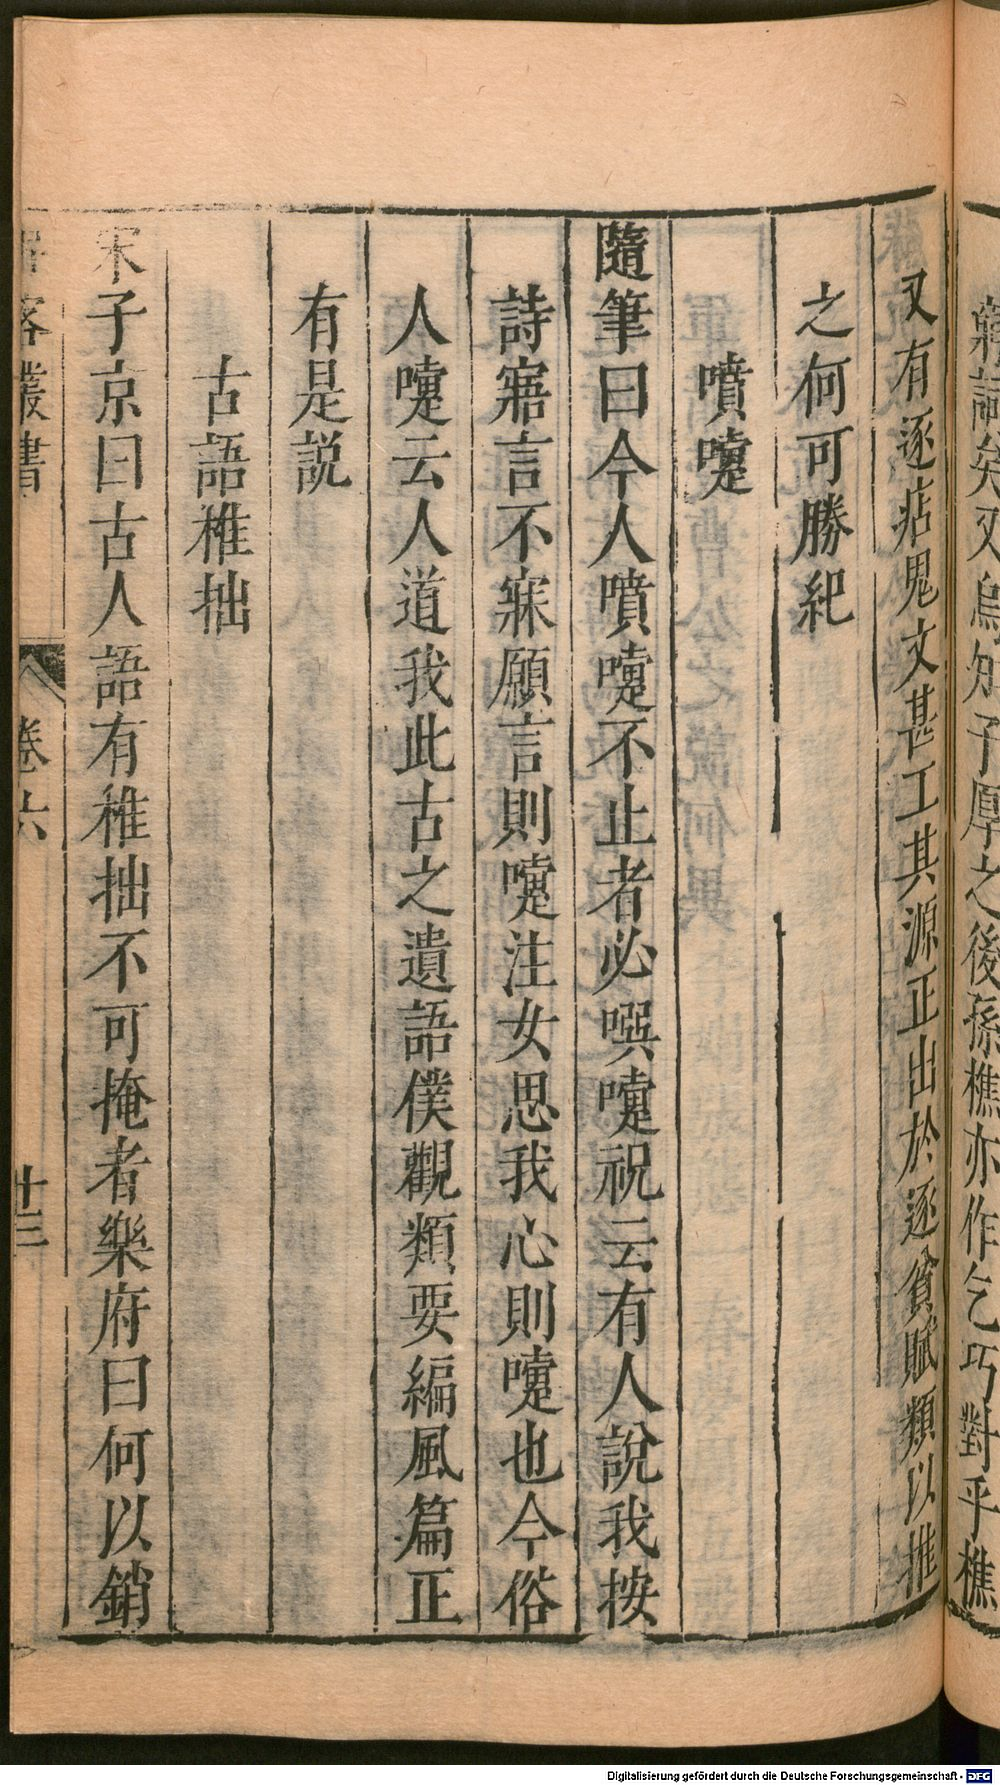 窮詞矣又烏知子厚之後孫樵亦作乞巧對乎樵
又有逐痁鬼文甚工其源正出於逐貧賦類以推
之何可勝紀
噴嚏
隨筆曰今人噴嚏不止者必噀嚏祝云有人說我按
詩寤言不寐願言則嚏注女思我心則嚏也今俗
人嚏云人道我此古之遺語僕觀類要編風篇正
有是説
古語椎拙
宋子京曰古人語有椎拙不可掩者樂府曰何以銷
客叢書
卷六
十三
Digitalisierung gefördert durch die Deutsche Forschungsgemeinschaft - DFG